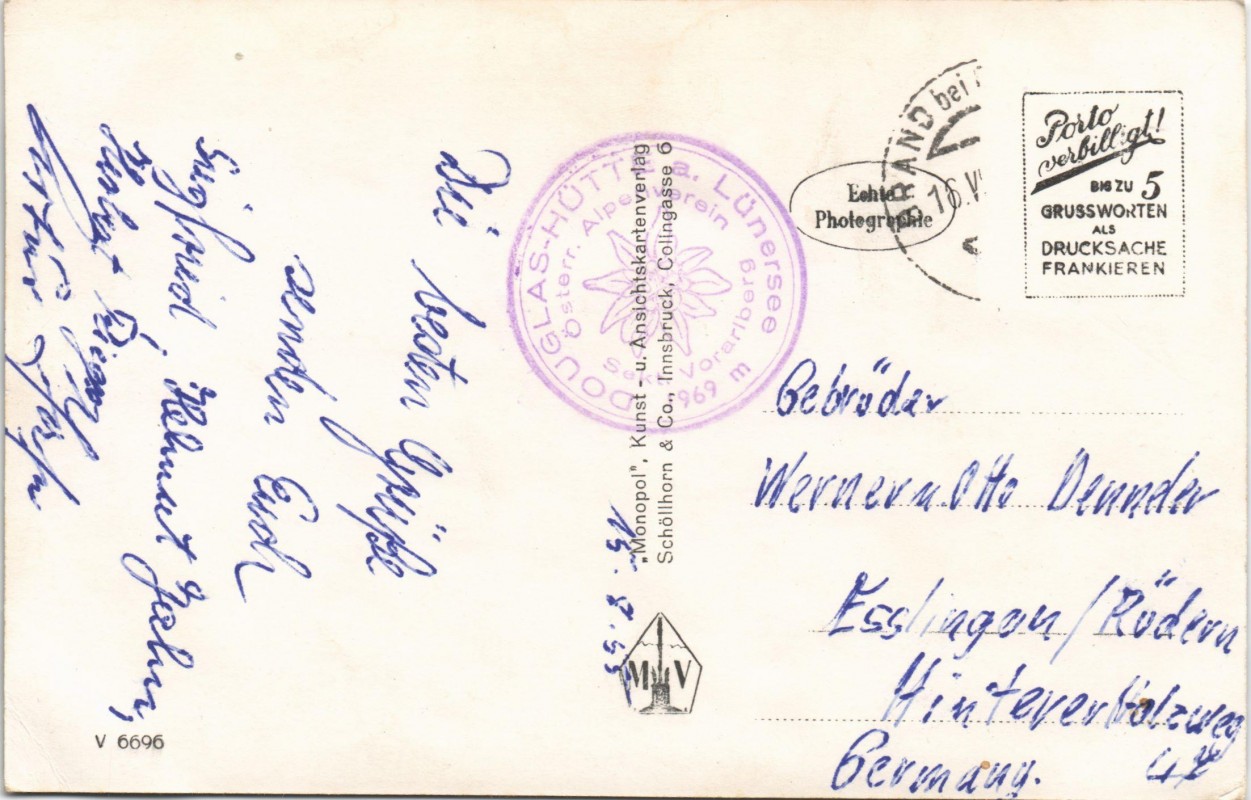 Die
besten Grüße
senden Euch
Siegfried, Helmut Jahn,
Herbert
15. 8. 55
DOUGLAS-HÜTTE a. Lünersee
1969 m
Österr. Alpenverein
Sekt. Vorarlberg
„Monopol“, Kunst- u. Ansichtskartenverlag
Schöllhorn & Co., Innsbruck, Colingasse 6
M V
V 6696
Echte
Photographie
BRAND bei
16.VI
Porto
verbilligt!
BIS ZU 5
GRUSSWORTEN
ALS
DRUCKSACHE
FRANKIEREN
Gebrüder
Werner u Otto Dennder
Esslingen/Rüdern
Hinterer Holzweg
42
Germany.